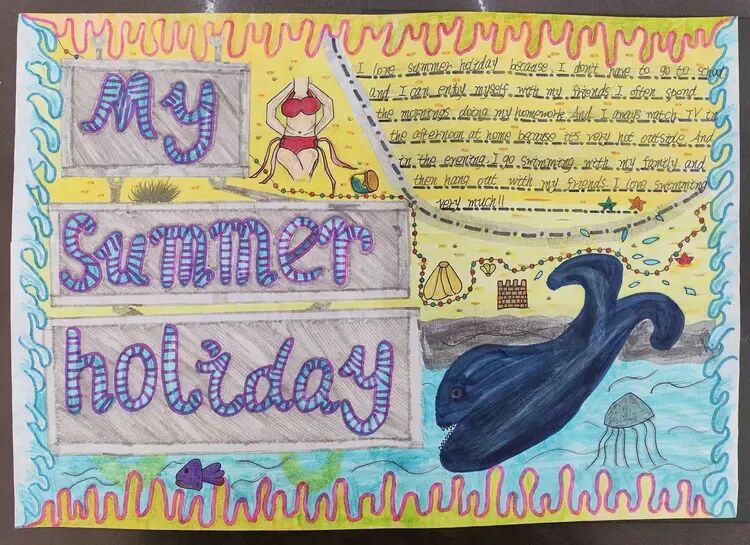 My
Summer
holiday
I love summer holiday because I don't have to go to school
and I can enjoy myself with my friends. I often spend
the mornings doing my homework. And I aways watch TV in
the afternoon at home because it's very hot outside. And
in the evening, I go swimming with my family and
then hang out with my friends. I love swimming
very much!!